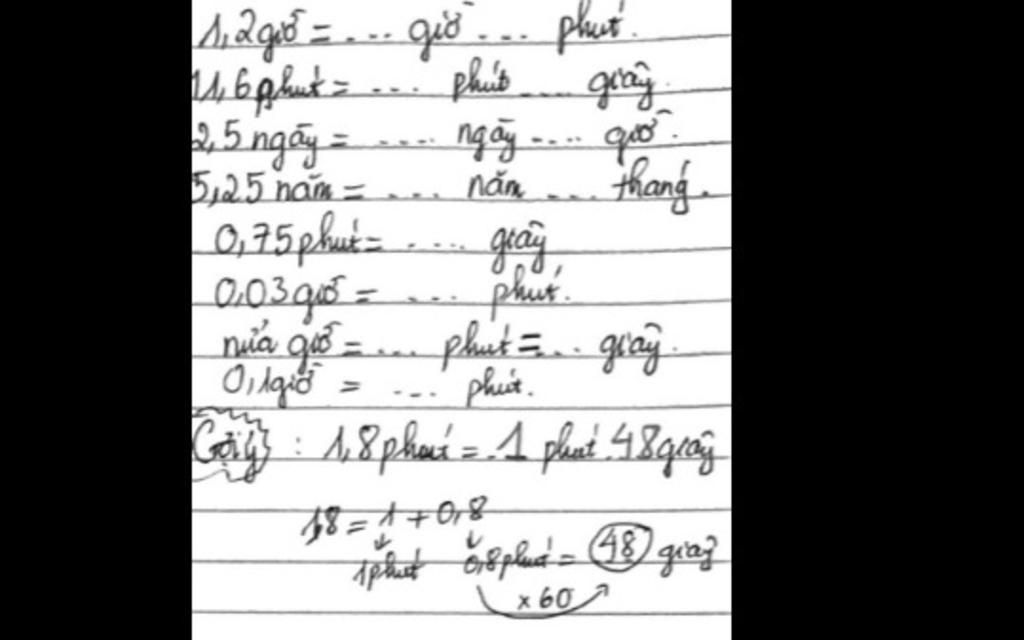 1,2 giờ = .... giờ .... phút.
11,6 phút = .... phút .... giây.
2,5 ngày = .... ngày .... giờ.
5,25 năm = .... năm .... tháng.
0,75 phút = .... giây
0,03 giờ = .... phút.
nửa giờ = .... phút = .... giây.
0,1 giờ = .... phút.
Gợi ý : 1,8 phút = .1 phút .48 giây
1,8 = 1 + 0,8
1 phút 0,8 phút = 48 giây
x 60